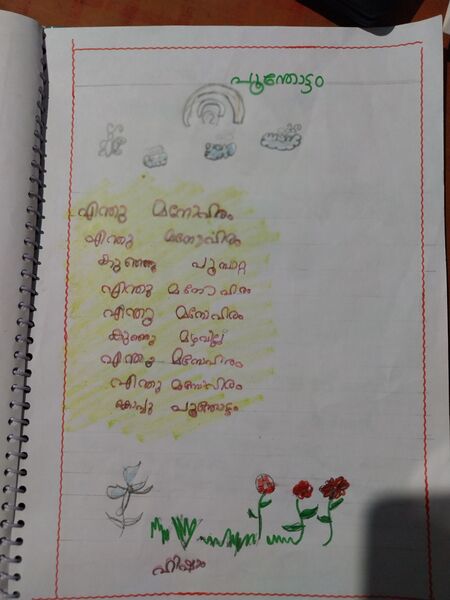 പൂന്തോട്ടം
എന്തു മനോഹരം
എന്തു മനോഹരം
കുഞ്ഞു പൂമ്പാറ്റ
എന്തു മനോഹരം
എന്തു മനോഹരം
കുഞ്ഞു മഴവില്ല്
എന്തു മനോഹരം
എന്തു മനോഹരം
പൂന്തോട്ടം
ഹിഷാം